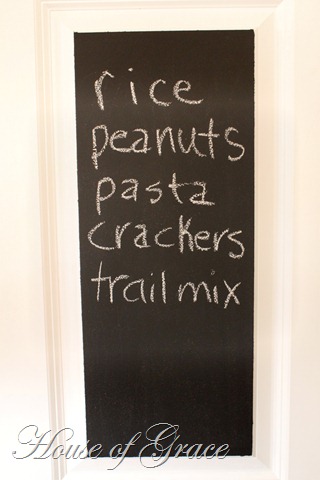 rice
peanuts
pasta
crackers
trail mix
House of Grace